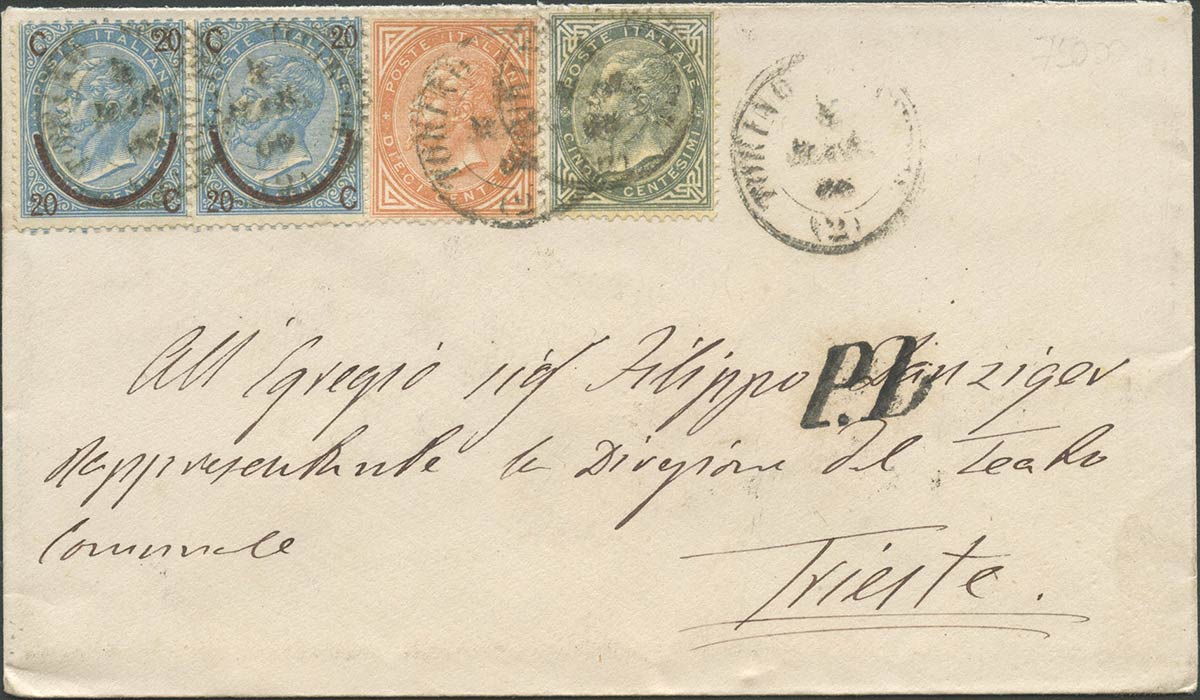 C 20 C 20
POSTE ITALIANE POSTE ITALIANE POSTE ITALIANE POSTE ITALIANE
20 C 20 C DIECI CENTESIMI CINQUE CENTESIMI
TORINO TORINO
(2) (2)
P.D
All Egregio sig Filippo Danziger
Rappresentante la Direzione del Teatro
Comunale
Trieste.